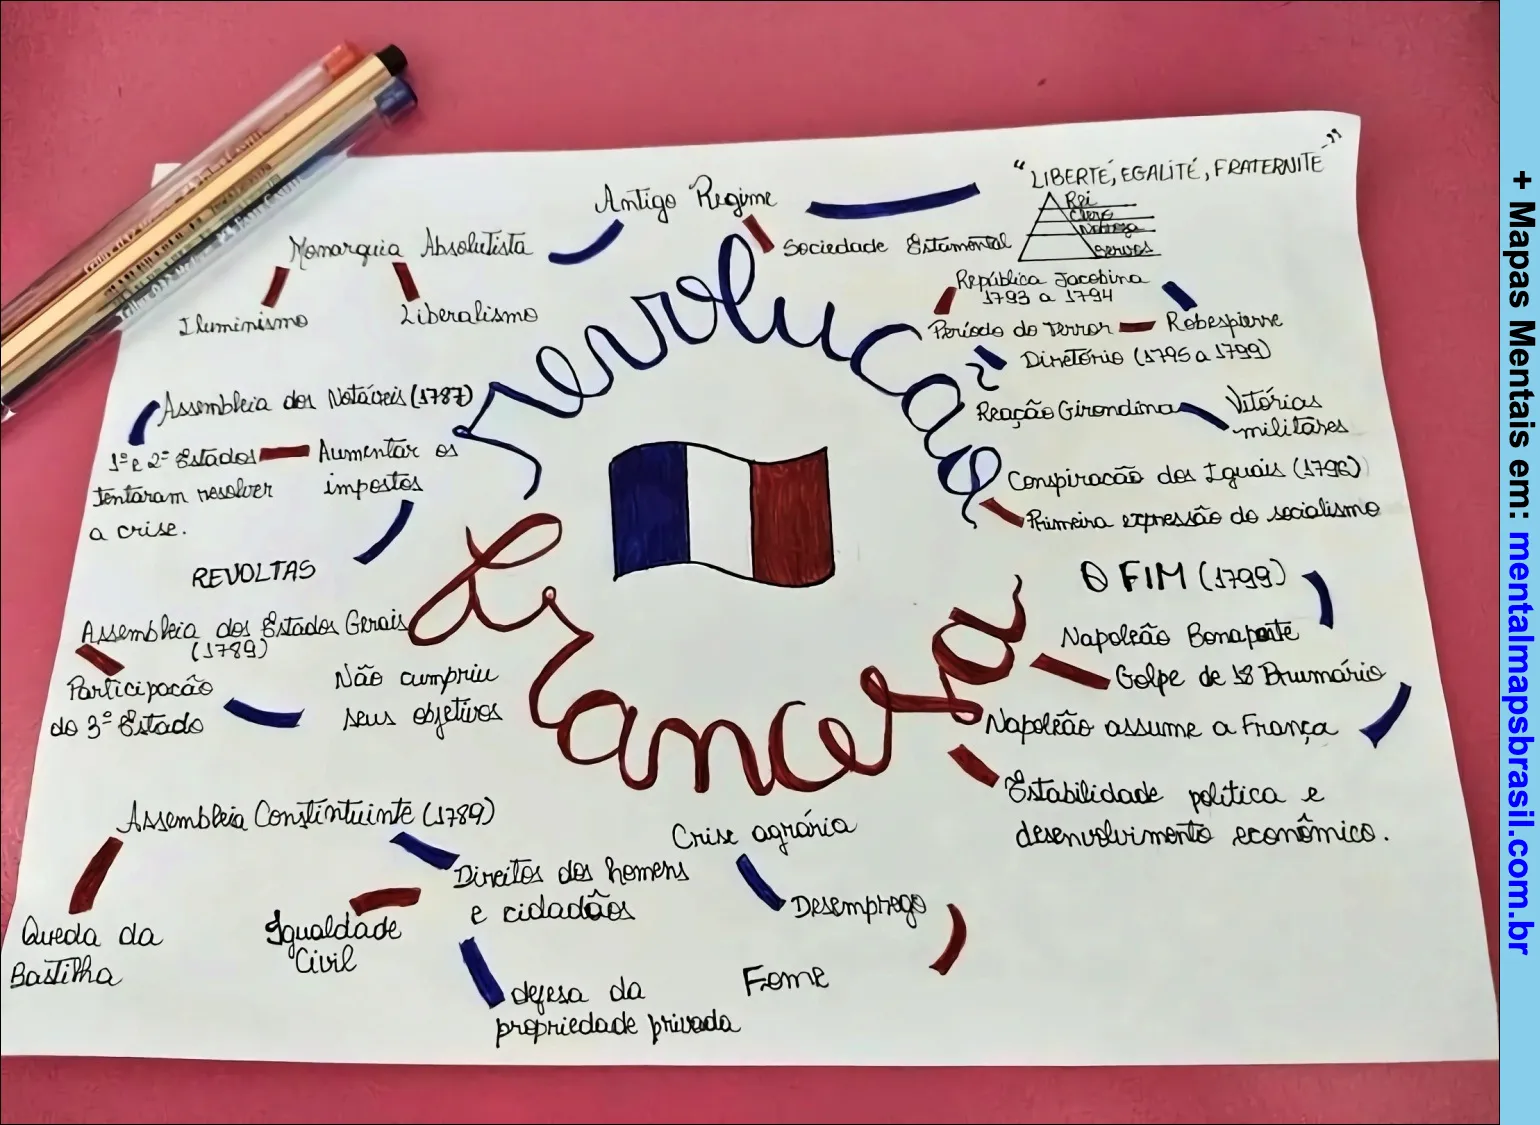 "LIBERTÉ, EGALITÉ, FRATERNITE"
Antigo Regime
Rei
Clero
Nobreza
Servos
Monarquia Absolutista
Sociedade Estamental
Iluminismo
Liberalismo
República Jacobina
1793 a 1794
Período do Terror
Robespierre
Diretório (1795 a 1799)
Reação Girondina
Vitórias
militares
Conspiração dos Iguais (1796)
Primeira expressão do socialismo
Revolução
Francesa
Assembleia dos Notáveis (1787)
1º e 2º Estados
tentaram resolver
a crise.
Aumentar os
impostos
REVOLTAS
Assembleia dos Estados Gerais
(1789)
Participação
do 3º Estado
Não cumpriu
seus objetivos
O FIM (1799)
Napoleão Bonaparte
Golpe de 18 Brumário
Napoleão assume a França
Estabilidade política e
desenvolvimento econômico.
Assembleia Constintuinte (1789)
Queda da
Bastilha
Direitos dos homens
e cidadãos
Igualdade
Civil
defesa da
propriedade privada
Crise agrária
Desemprego
Fome
+ Mapas Mentais em: mentalmapsbrasil.com.br